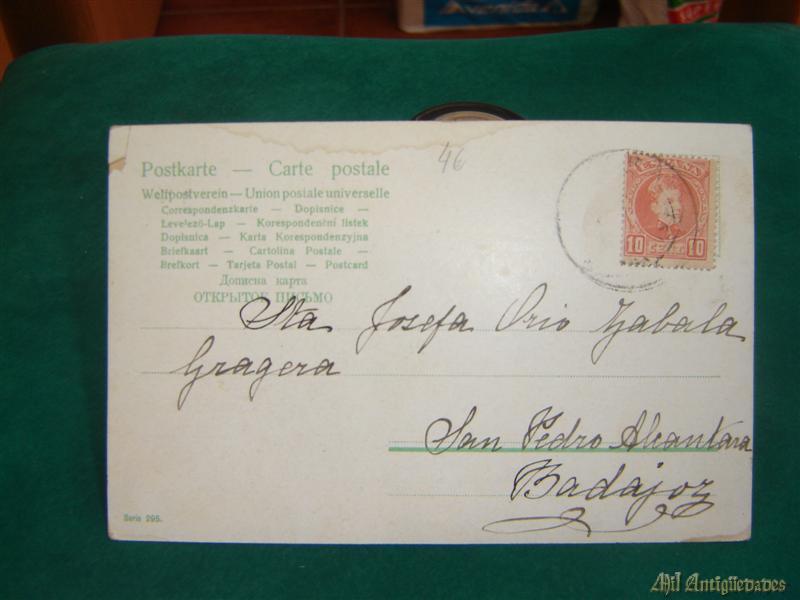 46
Postkarte — Carte postale
Weltpostverein — Union postale universelle
Correspondenzkarte — Dopisnice —
Levelező-Lap — Korespondenční lístek
Dopisnica — Karta Korespondenzyjna
Briefkaart — Cartolina Postale —
Brefkort — Tarjeta Postal — Postcard
Дописна карта
ОТКРЫТОЕ ПИСЬМО
ESPAÑA
10 10
Sta Josefa Orio Zabala
Gragera
San Pedro Alcantara
Badajoz
Serie 295.
Mil Antigüedades